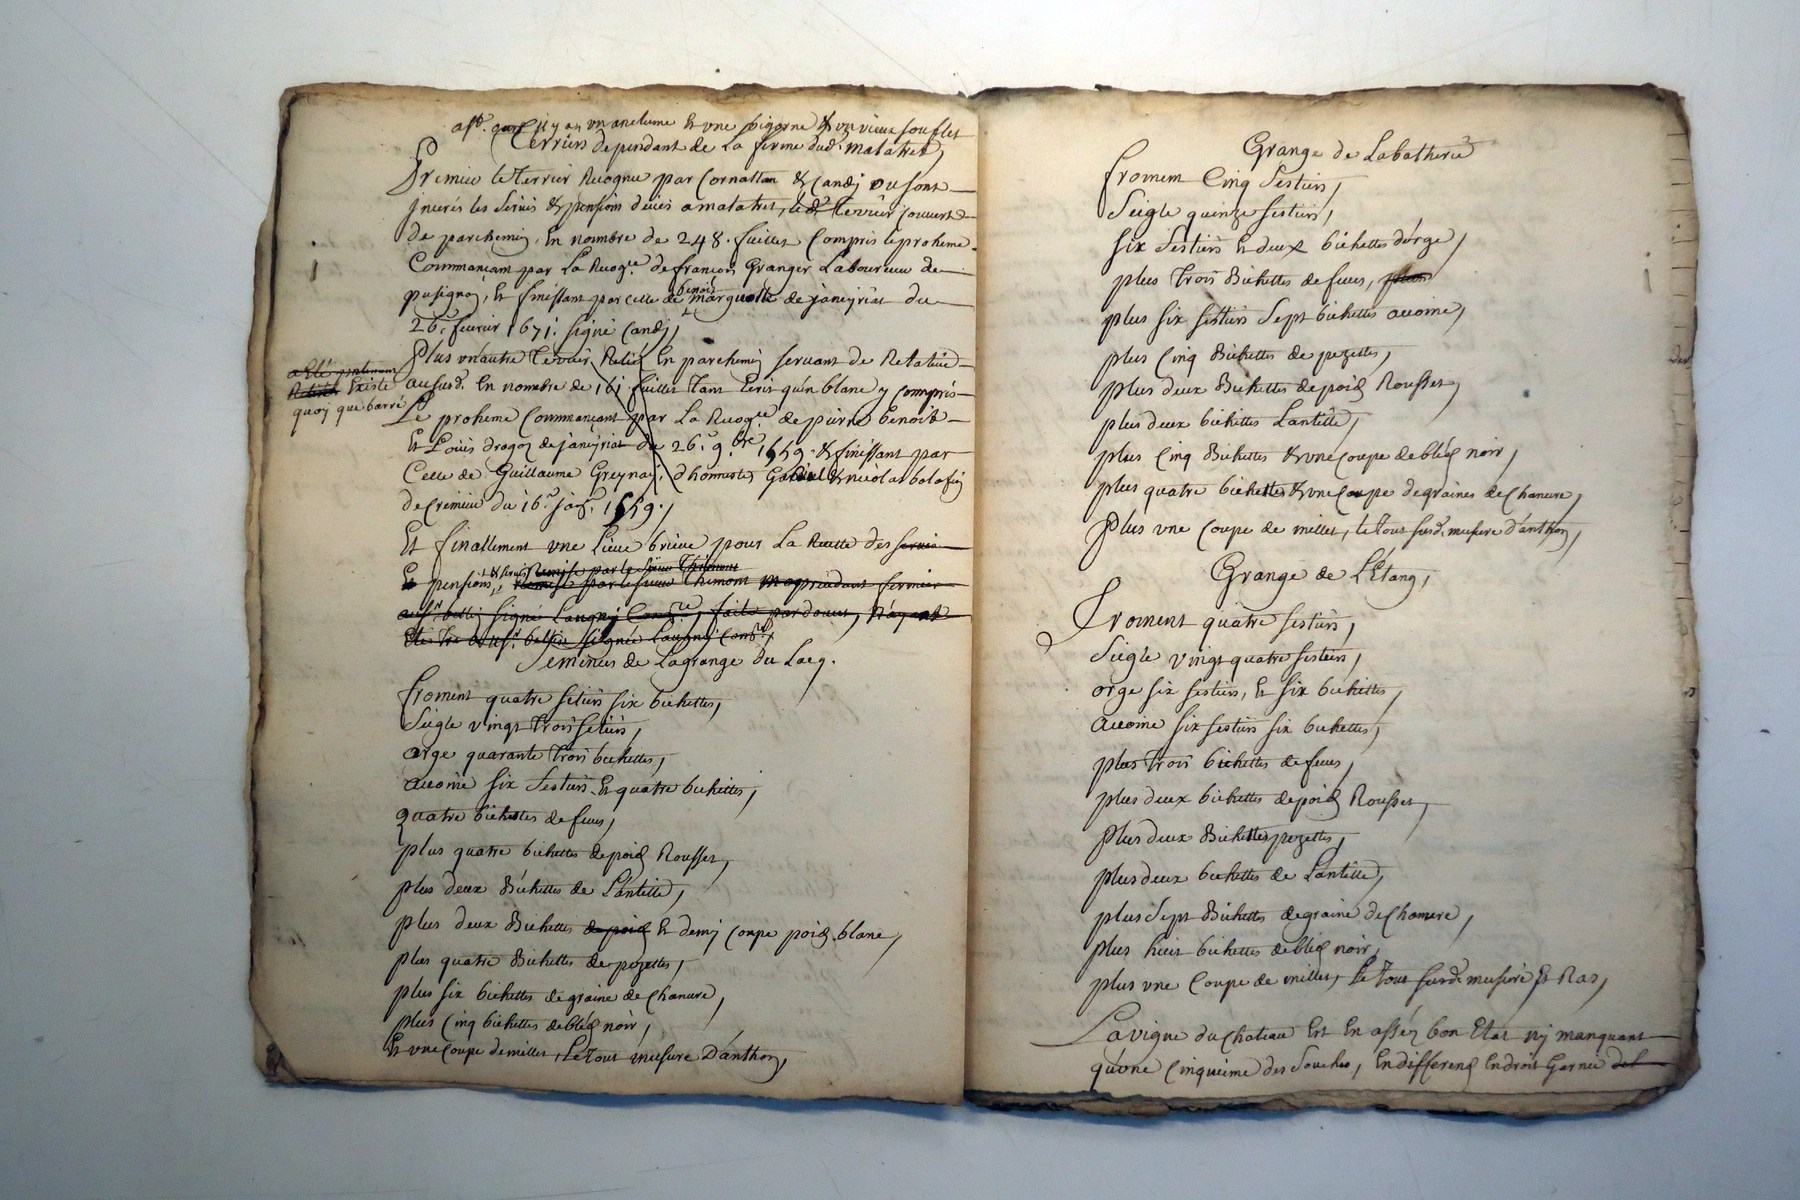 il y a un anclume Et une bigorne & un vieux souflet
Terriers dependant de La ferme dud. malatret,
Premier le Terrier Recognu par Cornatton & Candy ou sont
Inserés les Servis & pensions deües a malatret, led. Terrier couvert
de parchemin, En nombre de 248. fuillet Compris le proheme
Commançant par La Recog.ce de françois Granger Laboureur de
pusignan, Et finissant par celle de benoit marquette de janeyriat du
26.e feurier 1671. signé Candy,
Plus un autre Terrier Relié En parchemin servant de Relatiue
au susd. En nombre de 161 fuillet Tant Ecrit qu'en blanc y Compris
Existe
quoy que barré
Le proheme Commançant par La Recog.ce de pierre benoit
Et Louis dragon de janeyriat du 26.e 9.bre 1559. & finissant par
Celle de Guillaume Greynay, d'honnestes & nicolas bolofin
de Cremieu du 16.e jan.r 1559.,
Et finallement une Lieue brieue pour La Recette des servis
Et pensions, & servis Remise par le sieur Thimont
remise par le sieur Thimont fermier
signé Langny faite par douet, N'ayant
signée
Semences de Lagrange du Lacq.
froment quatre setiers six bichettes,
Seigle vingt Trois setiers,
orge quarante Trois bichettes,
auoine six Sestiers Et quatre bichettes,
quatre bichettes de feues,
plus quatre bichettes de poid Rousset,
plus deux Bichettes de Lantille,
plus deux Bichettes de poid Et demy Coupe poid blanc,
plus quatre Bichettes de pezettes,
plus six bichettes de graine de Chanure,
plus Cinq bichettes de bléd noir,
Et une Coupe de millet, Le Tout mesure D'anthon,
Grange de Labatherie
froment Cinq Sestiers,
Seigle quinze sestiers,
six Sestiers Et deux bichettes d'orge,
plus Trois Bichettes de feues, plus
plus six sestiers Sept bichettes auoine,
plus Cinq Bichettes de pezettes,
plus deux Bichettes de poid Rousset,
plus deux bichettes Lantille,
plus Cinq Bichettes & une Coupe de bléd noir,
plus quatre bichettes & une Coupe de graines de Chanure,
Plus une Coupe de millet, le Tout susd. mesure d'anthon,
Grange de L'Etang,
Froment quatre sestiers,
Seigle vingt quatre sestiers,
orge six sestiers, Et six bichettes,
Auoine six sestiers six bichettes,
plus Trois bichettes de feues,
plus deux bichettes de poid Rousset,
Plus deux Bichettes pezettes,
plus deux bichettes de Lantille,
plus Sept Bichettes de graine de Chanure,
plus huit bichettes de bléd noir,
plus une Coupe de millet, Le Tout susd. mesure Et Ras,
La vigne du Chateau Est En assez bon Etat n'y manquant
qu'une Cinquieme des Souches, En differend Endroit Garnie del